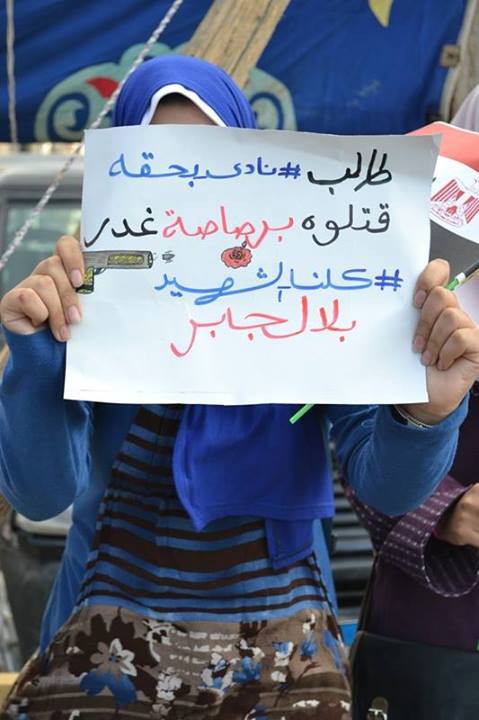 طالب #نادى بحقه
قتلوه برصاصة غدر
#كلنا_الشهيد
بلال جابر